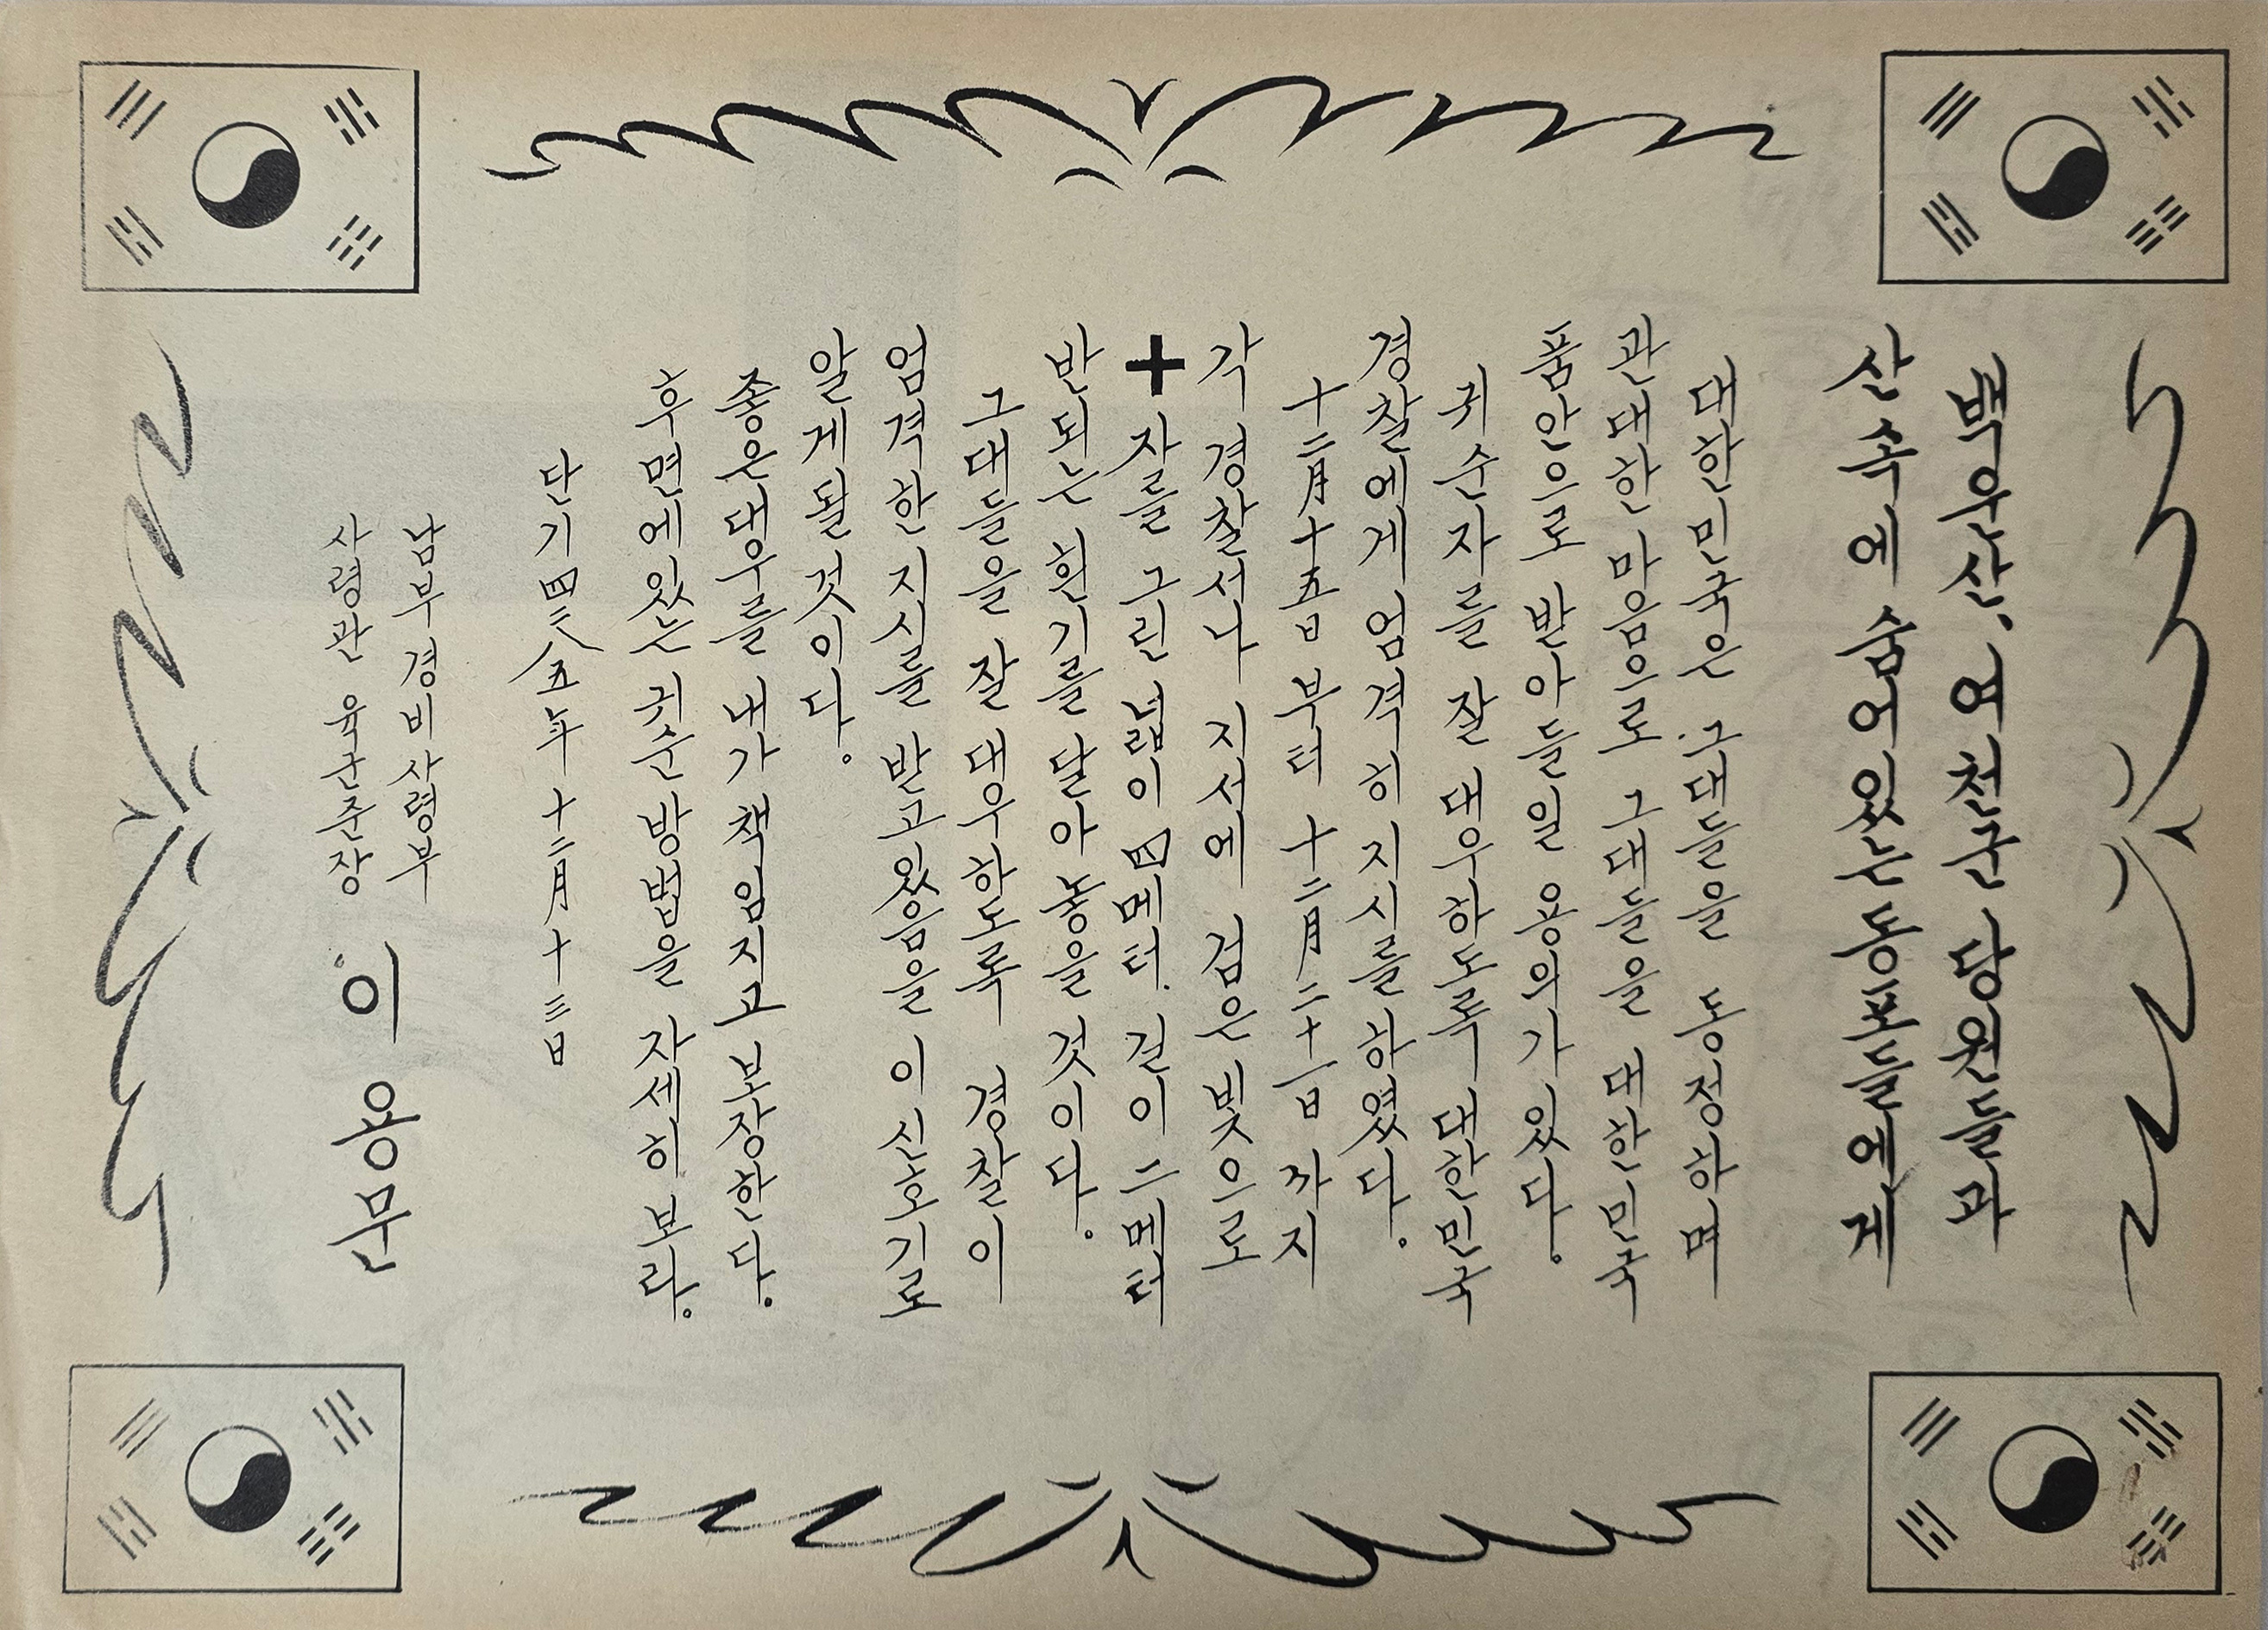 백우산, 요천군 당원들과
산속에 숨어있는 들에게
대한민국은 그대들을 동정하며
관대한 마음으로 그대들을 대한민국
품안으로 받아들일 용의가 있다.
귀순자를 잘 대우하도록 대한민국
경찰에게 엄격히 지시를 하였다.
十二月十五日 부터 十二月二十一日 까지
각 경찰서나 지서에 검은 빛으로
✚자를 그린 넓이 四메터. 길이 二메터
반되는 흰기를 달아 놓을 것이다.
그대들을 잘 대우하도록 경찰이
엄격한 지시를 받고있음을 이 신호기로
알게될 것이다.
좋은대우를 내가 책임지고 보장한다.
후면에있는 귀순 방법을 자세히 보라.
단기 四二八五年 十二月 十三日
남부 경비사령부
사령관 육군준장 이용문